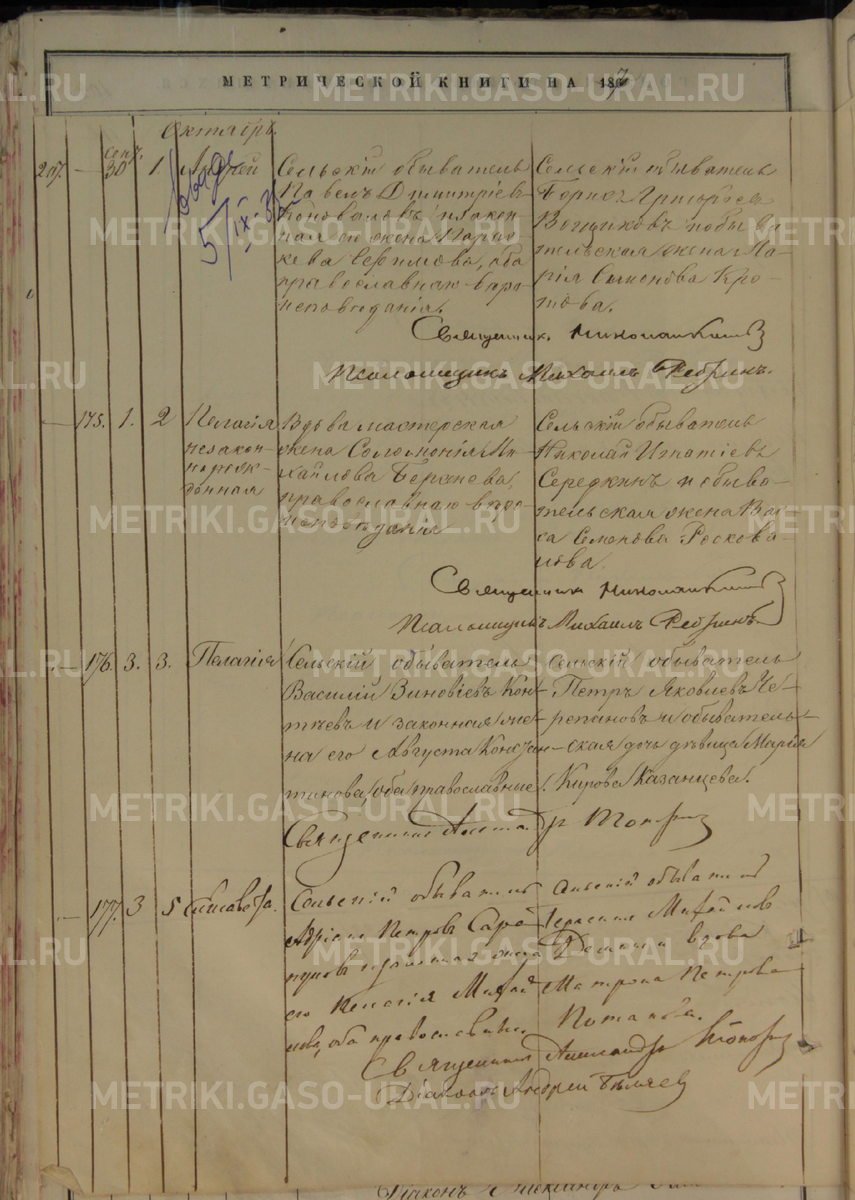 МЕТРИЧЕСКОЙ КНИГИ НА 187
METRIKI.GASO-URAL.RU
Октябрь
207. — сент. 30 1 Андрей
5/IX-
Сельскій обыватель
Павелъ Дмитріевъ
Коноваловъ и закон-
ная его жена Парас-
кева оба
православнаго вѣро-
исповѣданія.
Сельскій обыватель
Григорьевъ
и обыва-
тельская жена Ма-
рія Симонова Кро-
това.
Священникъ Николай
Псаломщикъ Михаилъ Ребринъ.
— 175. 1. 2 Пелагія
незакон-
норож-
денная
Вдова мастерская
жена Соломонія Ми-
хайлова
православнаго вѣро-
исповѣданія
Сельскій обыватель
Николай Игнатіевъ
Середкинъ и обыва-
тельская жена Вас-
са Семенова Роскова-
лова.
Священникъ Николай
Псаломщикъ Михаилъ Ребринъ
— 176. 3. 3. Пелагія
Сельскій обыватель
Василій Зиновіевъ Кон-
и законная же-
на его Августа Констан-
тинова, оба православные.
Сельскій обыватель
Петръ Яковлевъ Че-
репановъ и обыватель-
ская дочь дѣвица Марія
Кирова Казанцева.
Священникъ Александръ Топор
— 177. 3 5 Елисавета.
Сельскій обыватель
Адріанъ Петровъ Сара-
пуловъ и законная жена
его Пелагія Михай-
лова, оба православные.
Сельскій обыватель
Герасимъ Михайловъ
вдова
Матрона Петрова
Потапова.
Священникъ Александръ Топор
Діаконъ Андрей
Діаконъ Александръ